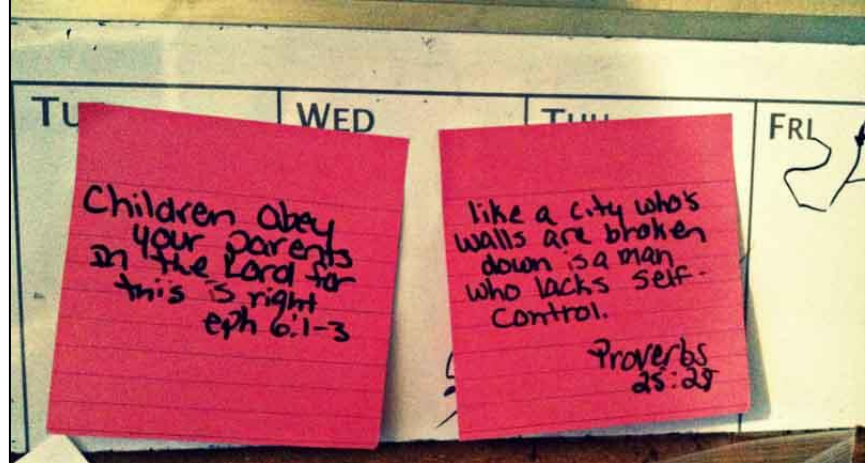 TU
WED
THU
FRI
Children obey
your parents
in the Lord for
this is right
eph 6:1-3
like a city who's
walls are broken
down is a man
who lacks self-
control.
Proverbs
25:28